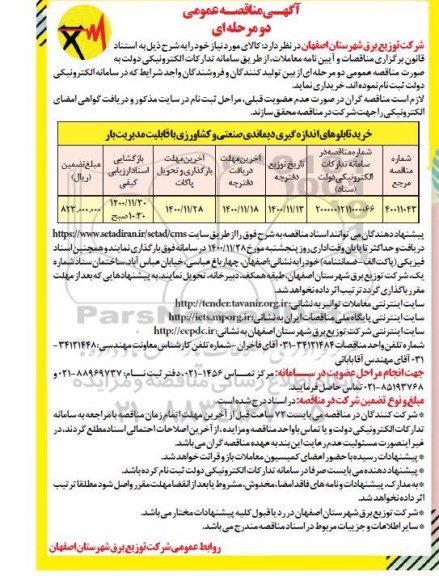 آگهی مناقصه عمومی
دو مرحله ای
شرکت توزیع برق شهرستان اصفهان در نظر دارد: کالای مورد نیاز خود را به شرح ذیل به استناد
قانون برگزاری مناقصات و آیین نامه معاملات، از طریق سامانه تدارکات الکترونیکی دولت به
صورت مناقصه عمومی دو مرحله ای از بین تولید کنندگان و فروشندگان واجد شرایط که در سامانه الکترونیکی
دولت ثبت نام نموده اند، خریداری نماید.
لازم است مناقصه گران در صورت عدم عضویت قبلی، مراحل ثبت نام در سایت مذکور و دریافت گواهی امضای
الکترونیکی را جهت شرکت در مناقصه محقق سازند.
خرید تابلوهای اندازه گیری دیماندی صنعتی و کشاورزی با قابلیت مدیریت بار
شماره مناقصه مرجع
شماره مناقصه در سامانه تدارکات الکترونیکی دولت (ستاد)
تاریخ توزیع دفترچه
آخرین مهلت دریافت دفترچه
آخرین مهلت بارگذاری و تحویل پاکات
بازگشایی اسناد ارزیابی کیفی
مبلغ تضمین (ریال)
۴۰۰۱۱۰۴۳
۱۴۰۰/۱۱/۱۳
۱۴۰۰/۱۱/۱۸
۱۴۰۰/۱۱/۲۸
۱۴۰۰/۱۱/۳۰ ۱۰:۳۰ صبح
۸۲۳,۰۰۰,۰۰۰
پیشنهاد دهندگان می توانند اسناد مناقصه به شرح فوق را از طریق سایت https://www.setadiran.ir/setad/cms
دریافت و حداکثر تا پایان وقت اداری روز پنجشنبه مورخ ۱۴۰۰/۱۱/۲۸ در سامانه فوق بارگذاری نمایند و همچنین اسناد
فیزیکی (پاکت الف - ضمانتنامه) خود را به نشانی: اصفهان، چهارباغ عباسی، خیابان عباس آباد، ساختمان ستاد شماره
یک، شرکت توزیع برق شهرستان اصفهان، طبقه همکف، دبیرخانه، تحویل نمایند. به پیشنهادهایی که بعد از مهلت
مقرر بارگذاری گردد ترتیب اثر داده نخواهد شد.
سایت اینترنتی معاملات توانیر به نشانی: http://tender.tavanir.org.ir
سایت اینترنتی پایگاه ملی مناقصات ایران به نشانی: http://iets.mporg.ir
سایت اینترنتی شرکت توزیع برق شهرستان اصفهان به نشانی: http://eepdc.ir
شماره تلفن واحد مناقصات ۳۴۱۲۱۴۸۴-۰۳۱ آقای فاخران - شماره تلفن کارشناس معاونت مهندسی: ۳۴۱۲۱۴۴۸-
۰۳۱ آقای مهندس آقابابائی
جهت انجام مراحل عضویت در سامانه: مرکز تماس ۱۴۵۶-۰۲۱، دفتر ثبت نام: ۸۸۹۶۹۷۳۷-۰۲۱ و
۸۵۱۹۳۷۶۸-۰۲۱ تماس حاصل فرمایید.
مبلغ و نوع تضمین شرکت در مناقصه: در اسناد درج شده است.
* شرکت کنندگان در مناقصه می بایست ۷۲ ساعت قبل از آخرین مهلت اتمام زمان مناقصه با مراجعه به سامانه
تدارکات الکترونیکی دولت و یا تماس با واحد مناقصه و مزایده، از آخرین اصلاحات احتمالی اسناد مطلع گردند، در
غیر اینصورت مسئولیت عدم رعایت این بند به عهده مناقصه گران می باشد.
* پیشنهادات رسیده با حضور اعضای کمیسیون معاملات باز و قرائت خواهد شد.
* پیشنهاد دهنده می بایست صرفا در سامانه تدارکات الکترونیکی دولت ثبت نام کرده باشد.
* به مدارک، پیشنهادات و نامه های فاقد امضا، مخدوش، مشروط یا بعد از انقضا مهلت مقرر واصل شود مطلقا ترتیب
اثر داده نخواهد شد.
* شرکت توزیع برق شهرستان اصفهان در رد یا قبول کلیه پیشنهادات مختار می باشد.
* سایر اطلاعات و جزییات مربوط در اسناد مناقصه مندرج می باشد.
روابط عمومی شرکت توزیع برق شهرستان اصفهان